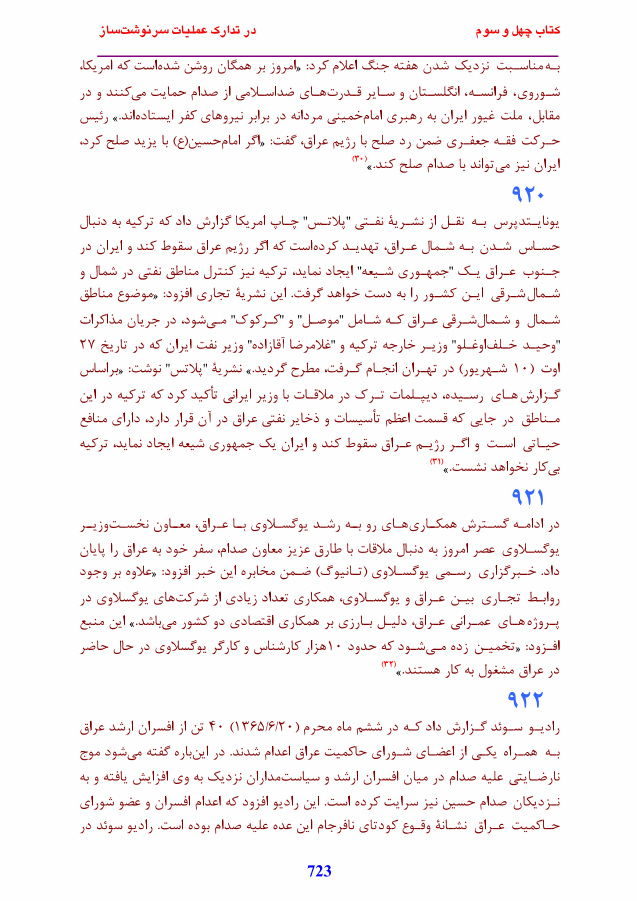 کتاب چهل و سوم
در تدارک عملیات سرنوشت‌ساز
به‌مناسبت نزدیک شدن هفته جنگ اعلام کرد: «امروز بر همگان روشن شده‌است که امریکا،
شوروی، فرانسه، انگلستان و سایر قدرت‌های ضداسلامی از صدام حمایت می‌کنند و در
مقابل، ملت غیور ایران به رهبری امام‌خمینی مردانه در برابر نیروهای کفر ایستاده‌اند.» رئیس
حرکت فقه جعفری ضمن رد صلح با رژیم عراق، گفت: «اگر امام‌حسین(ع) با یزید صلح کرد،
ایران نیز می‌تواند با صدام صلح کند.»(۳۰)
۹۲۰
یونایتدپرس به نقل از نشریۀ نفتی "پلاتس" چاپ امریکا گزارش داد که ترکیه به دنبال
حساس شدن به شمال عراق، تهدید کرده‌است که اگر رژیم عراق سقوط کند و ایران در
جنوب عراق یک "جمهوری شیعه" ایجاد نماید، ترکیه نیز کنترل مناطق نفتی در شمال و
شمال‌شرقی این کشور را به دست خواهد گرفت. این نشریۀ تجاری افزود: «موضوع مناطق
شمال و شمال‌شرقی عراق که شامل "موصل" و "کرکوک" می‌شود، در جریان مذاکرات
"وحید خلف‌اوغلو" وزیر خارجه ترکیه و "غلامرضا آقازاده" وزیر نفت ایران که در تاریخ ۲۷
اوت (۱۰ شهریور) در تهران انجام گرفت، مطرح گردید.» نشریۀ "پلاتس" نوشت: «براساس
گزارش‌های رسیده، دیپلمات ترک در ملاقات با وزیر ایرانی تأکید کرد که ترکیه در این
مناطق در جایی که قسمت اعظم تأسیسات و ذخایر نفتی عراق در آن قرار دارد، دارای منافع
حیاتی است و اگر رژیم عراق سقوط کند و ایران یک جمهوری شیعه ایجاد نماید، ترکیه
بی‌کار نخواهد نشست.»(۳۱)
۹۲۱
در ادامه گسترش همکاری‌های رو به رشد یوگسلاوی با عراق، معاون نخست‌وزیر
یوگسلاوی عصر امروز به دنبال ملاقات با طارق عزیز معاون صدام، سفر خود به عراق را پایان
داد. خبرگزاری رسمی یوگسلاوی (تانیوگ) ضمن مخابره این خبر افزود: «علاوه بر وجود
روابط تجاری بین عراق و یوگسلاوی، همکاری تعداد زیادی از شرکت‌های یوگسلاوی در
پروژه‌های عمرانی عراق، دلیل بارزی بر همکاری اقتصادی دو کشور می‌باشد.» این منبع
افزود: «تخمین زده می‌شود که حدود ۱۰هزار کارشناس و کارگر یوگسلاوی در حال حاضر
در عراق مشغول به کار هستند.»(۳۲)
۹۲۲
رادیو سوئد گزارش داد که در ششم ماه محرم (۱۳۶۵/۶/۲۰) ۴۰ تن از افسران ارشد عراق
به همراه یکی از اعضای شورای حاکمیت عراق اعدام شدند. در این‌باره گفته می‌شود موج
نارضایتی علیه صدام در میان افسران ارشد و سیاست‌مداران نزدیک به وی افزایش یافته و به
نزدیکان صدام حسین نیز سرایت کرده است. این رادیو افزود که اعدام افسران و عضو شورای
حاکمیت عراق نشانۀ وقوع کودتای نافرجام این عده علیه صدام بوده است. رادیو سوئد در
723